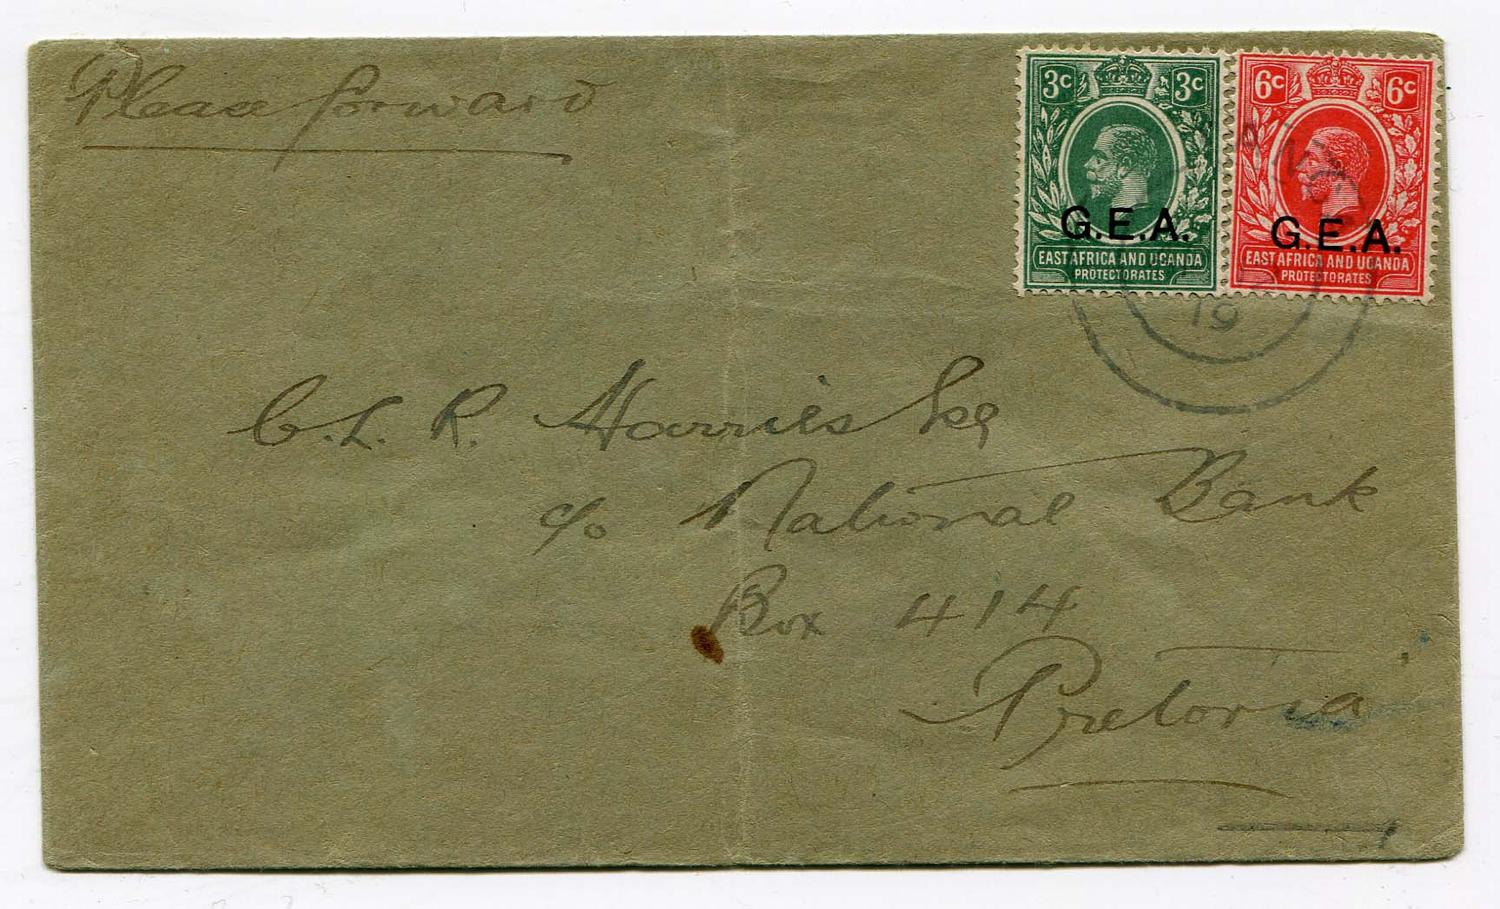 Please forward
3c 3c
G.E.A.
EAST AFRICA AND UGANDA
PROTECTORATES
6c 6c
G.E.A.
EAST AFRICA AND UGANDA
PROTECTORATES
19
C. L. R. Harries Esq
c/o National Bank
Box 414
Pretoria